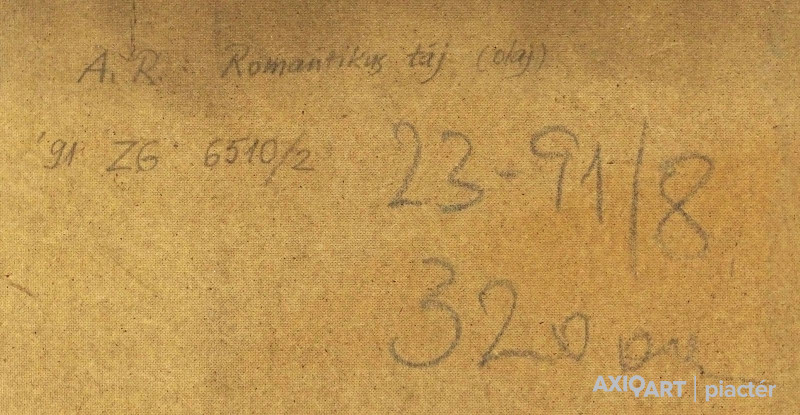 A. R. Romantikus táj (olaj)
'91 ZG 6510/2
23-91/8
320
AXIOART | piactér